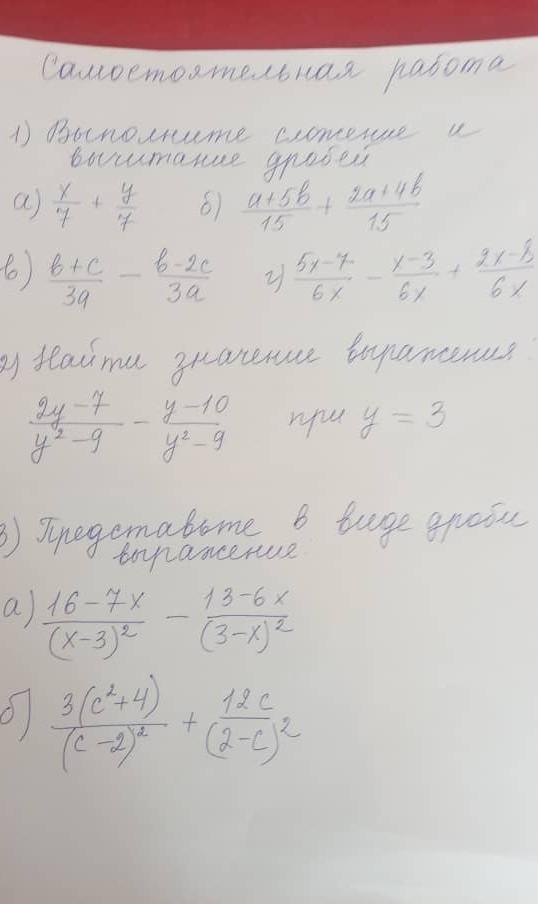 Самостоятельная работа
1) Выполните сложение и
вычитание дробей
а) x/7 + y/7 б) (a+5b)/15 + (2a+4b)/15
в) (b+c)/3a − (b-2c)/3a г) (5x-7)/6x − (x-3)/6x + (2x-8)/6x
2) Найти значение выражения:
(2y-7)/(y²-9) − (y-10)/(y²-9) при y = 3
3) Представьте в виде дроби
выражение:
а) (16-7x)/(x-3)² − (13-6x)/(3-x)²
б) 3(c²+4)/(c-2)² + 12c/(2-c)²